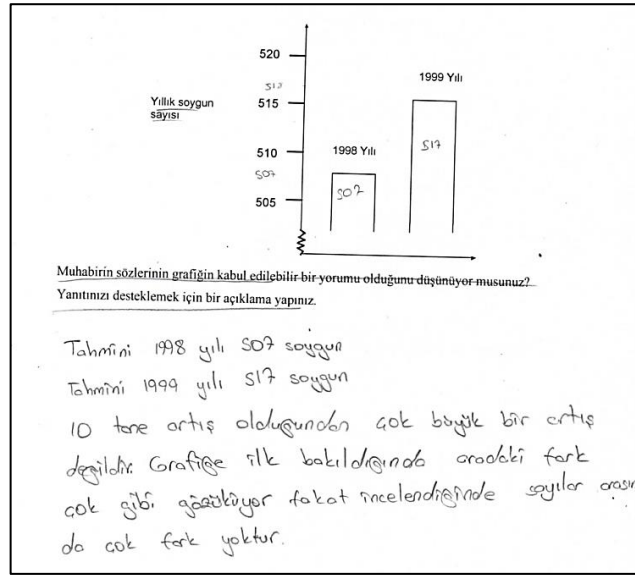 520
1999 Yılı
517
Yıllık soygun
sayısı
515
517
510
1998 Yılı
507
507
505
Muhabirin sözlerinin grafiğin kabul edilebilir bir yorumu olduğunu düşünüyor musunuz?
Yanıtınızı desteklemek için bir açıklama yapınız.
Tahmini 1998 yılı 507 soygun
Tahmini 1999 yılı 517 soygun
10 tane artış olduğundan çok büyük bir artış
değildir. Grafiğe ilk bakıldığında aradaki fark
çok gibi gözüküyor fakat incelendiğinde sayılar arasın
da çok fark yoktur.